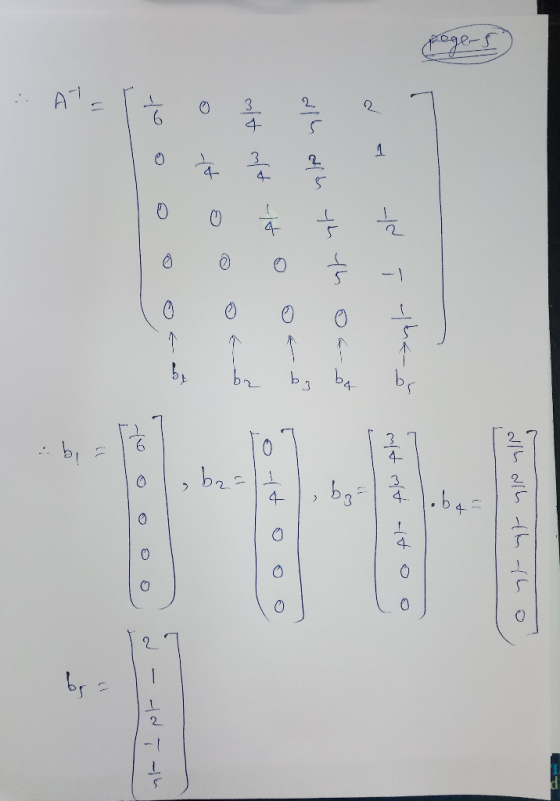 page-5
∴ A⁻¹ =
1/6 0 3/4 2/5 2
0 1/4 3/4 2/5 1
0 0 1/4 1/5 1/2
0 0 0 1/5 -1
0 0 0 0 1/5
↑ ↑ ↑ ↑ ↑
b₁ b₂ b₃ b₄ b₅
∴ b₁ = [1/6 0 0 0 0] , b₂ = [0 1/4 0 0 0] , b₃ = [3/4 3/4 1/4 0 0] . b₄ = [2/5 2/5 1/5 1/5 0]
b₅ = [2 1 1/2 -1 1/5]